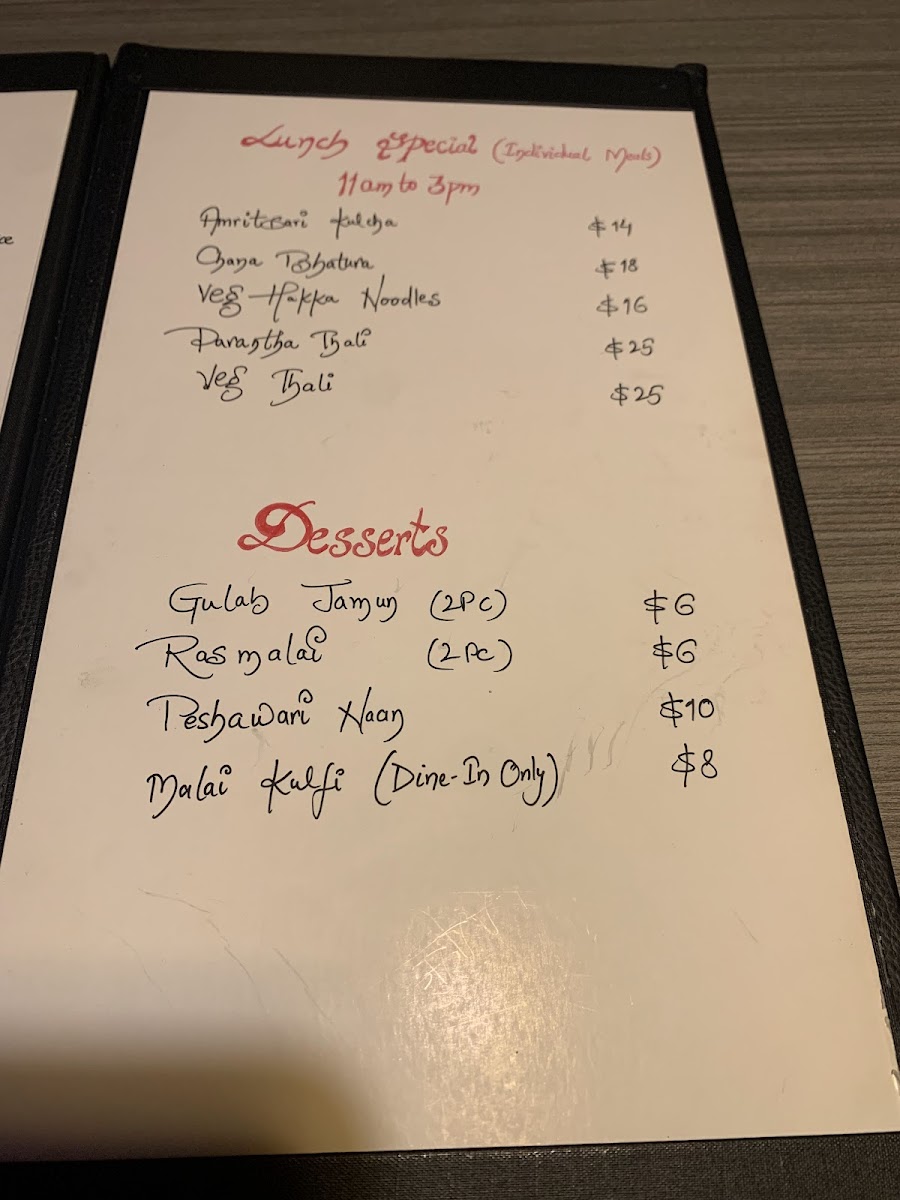 Lunch Special (Individual Meals)
11am to 3pm
Amritsari Kulcha $14
Chana Bhatura $18
Veg Hakka Noodles $16
Parantha Thali $25
Veg Thali $25
Desserts
Gulab Jamun (2PC) $6
Rasmalai (2PC) $6
Peshawari Naan $10
Malai Kulfi (Dine-In Only) $8